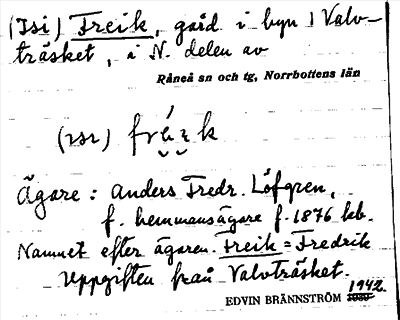 (Isi) Freik, gård i byn Valv-
träsket, i N. delen av
Råneå sn och tg, Norrbottens län
(ısı)
Ägare: Anders Fredr. Löfgren,
f. hemmansägare f. 1876 feb.
Namnet efter ägaren. Freik = Fredrik
Uppgiften från Valvträsket.
1942
EDVIN BRÄNNSTRÖM